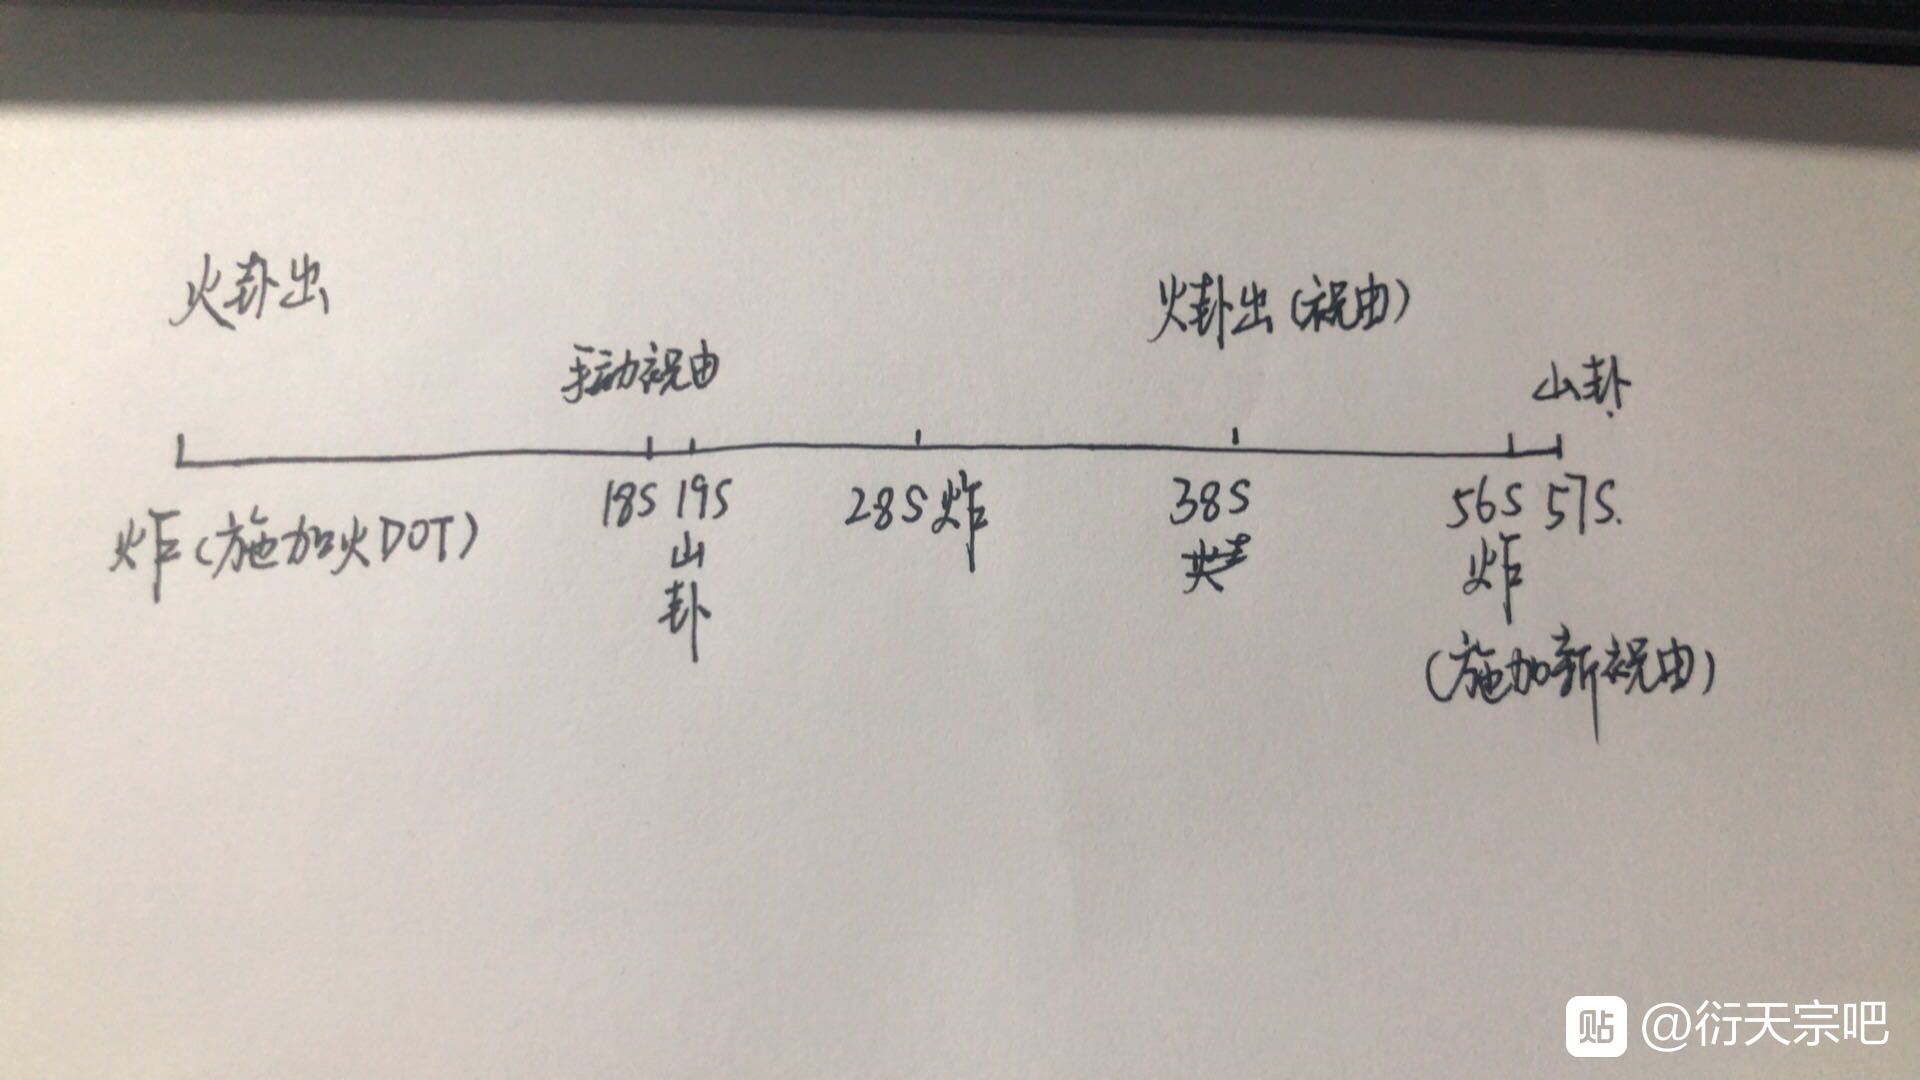 火卦出
火卦出(祝由)
手动祝由
山卦
18S 19S 28S炸 38S 56S 57S.
炸(施加火DOT)
山
卦
炸
(施加新祝由)
贴 @衍天宗吧